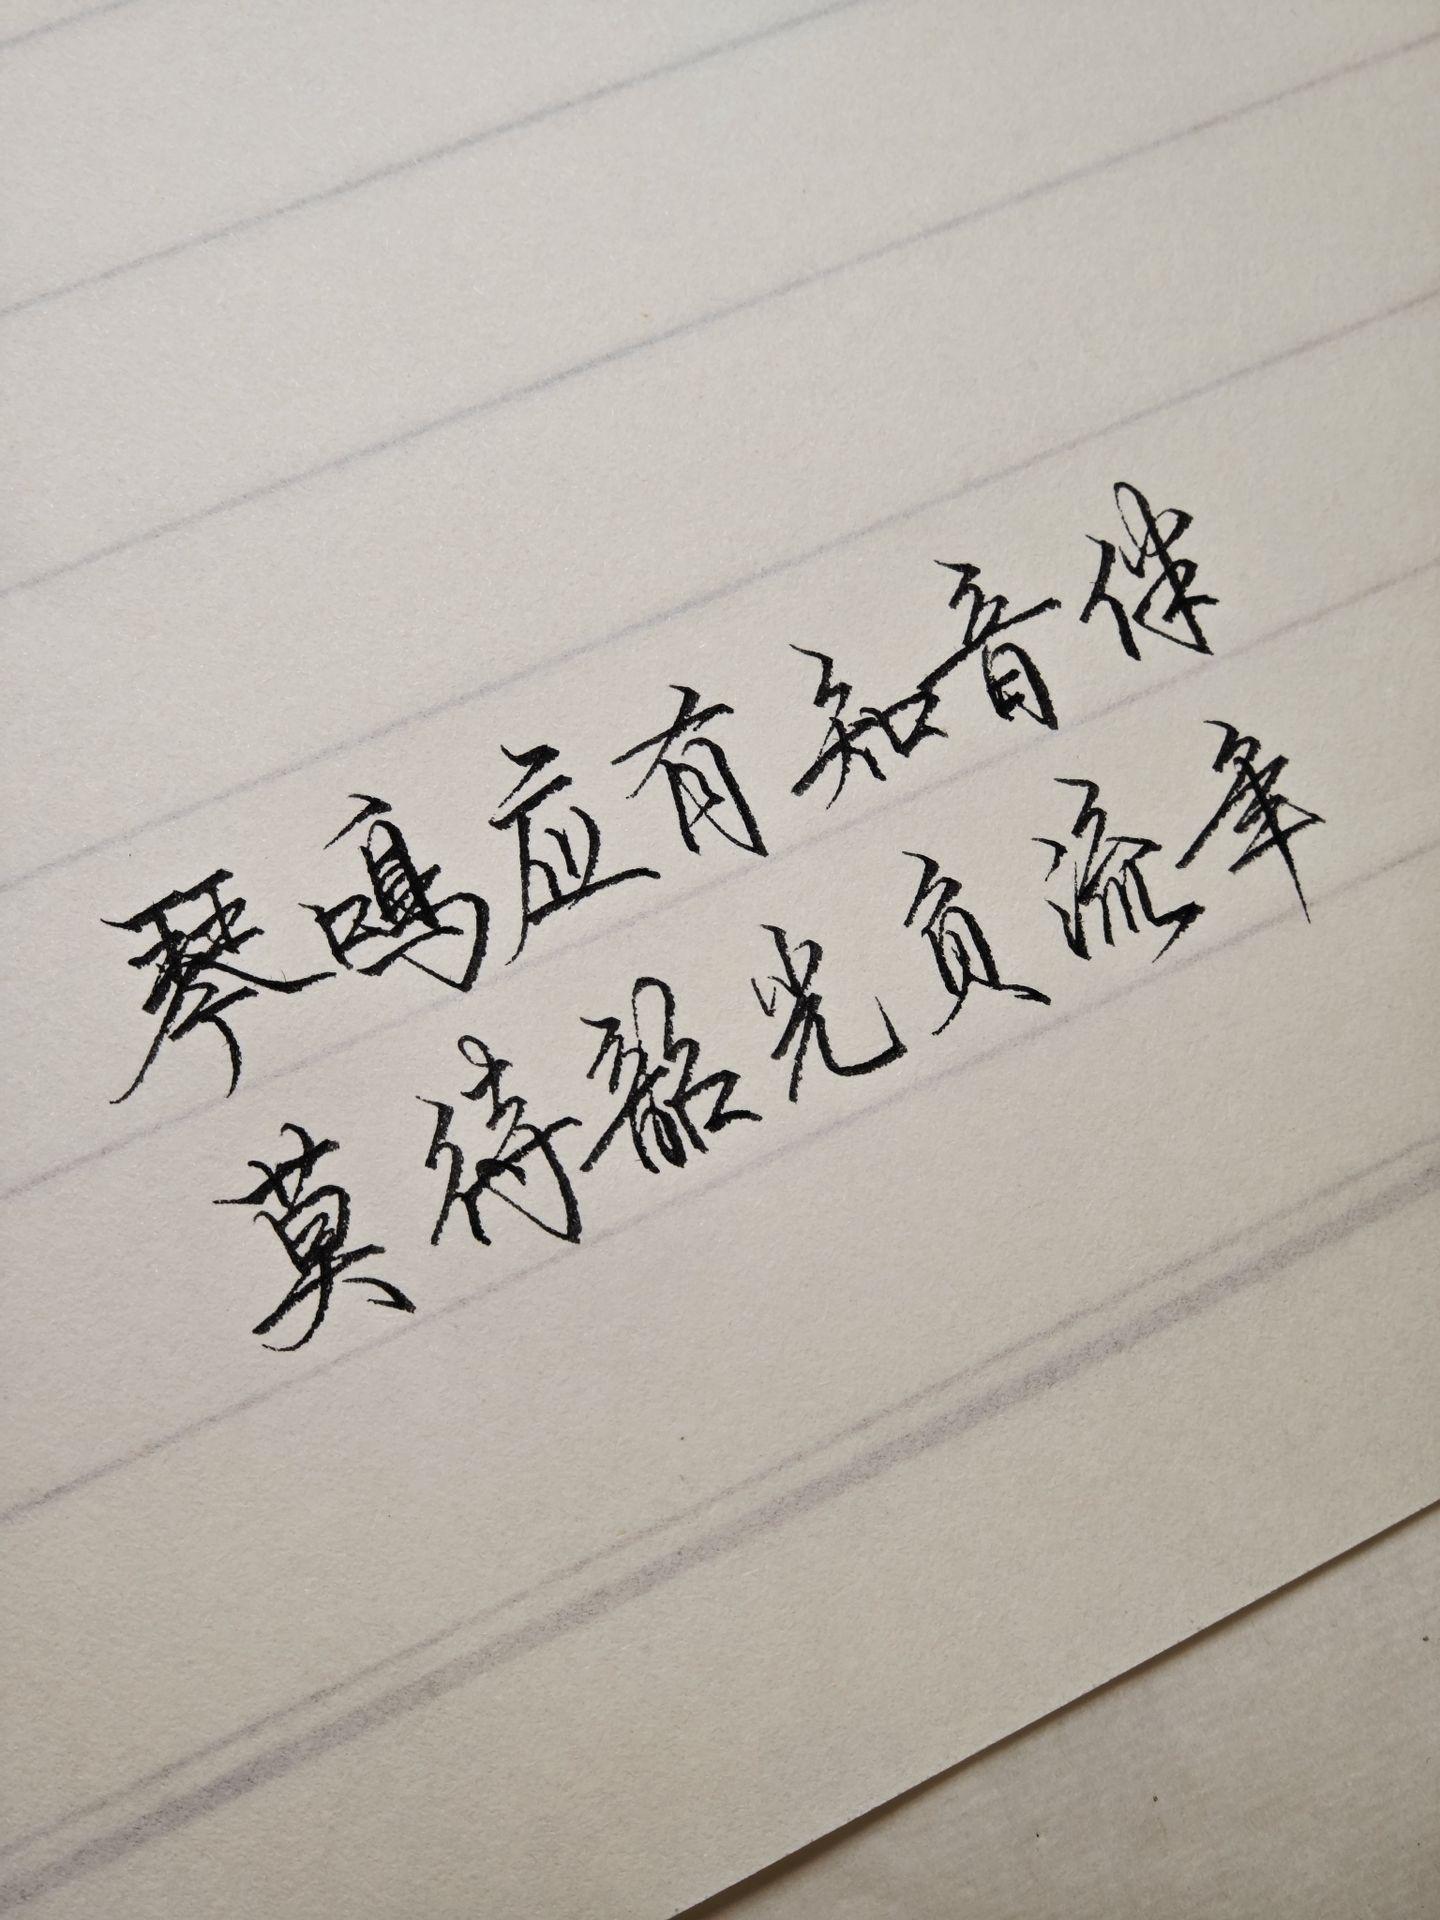 琴鸣应有知音伴
莫待韶光负流年